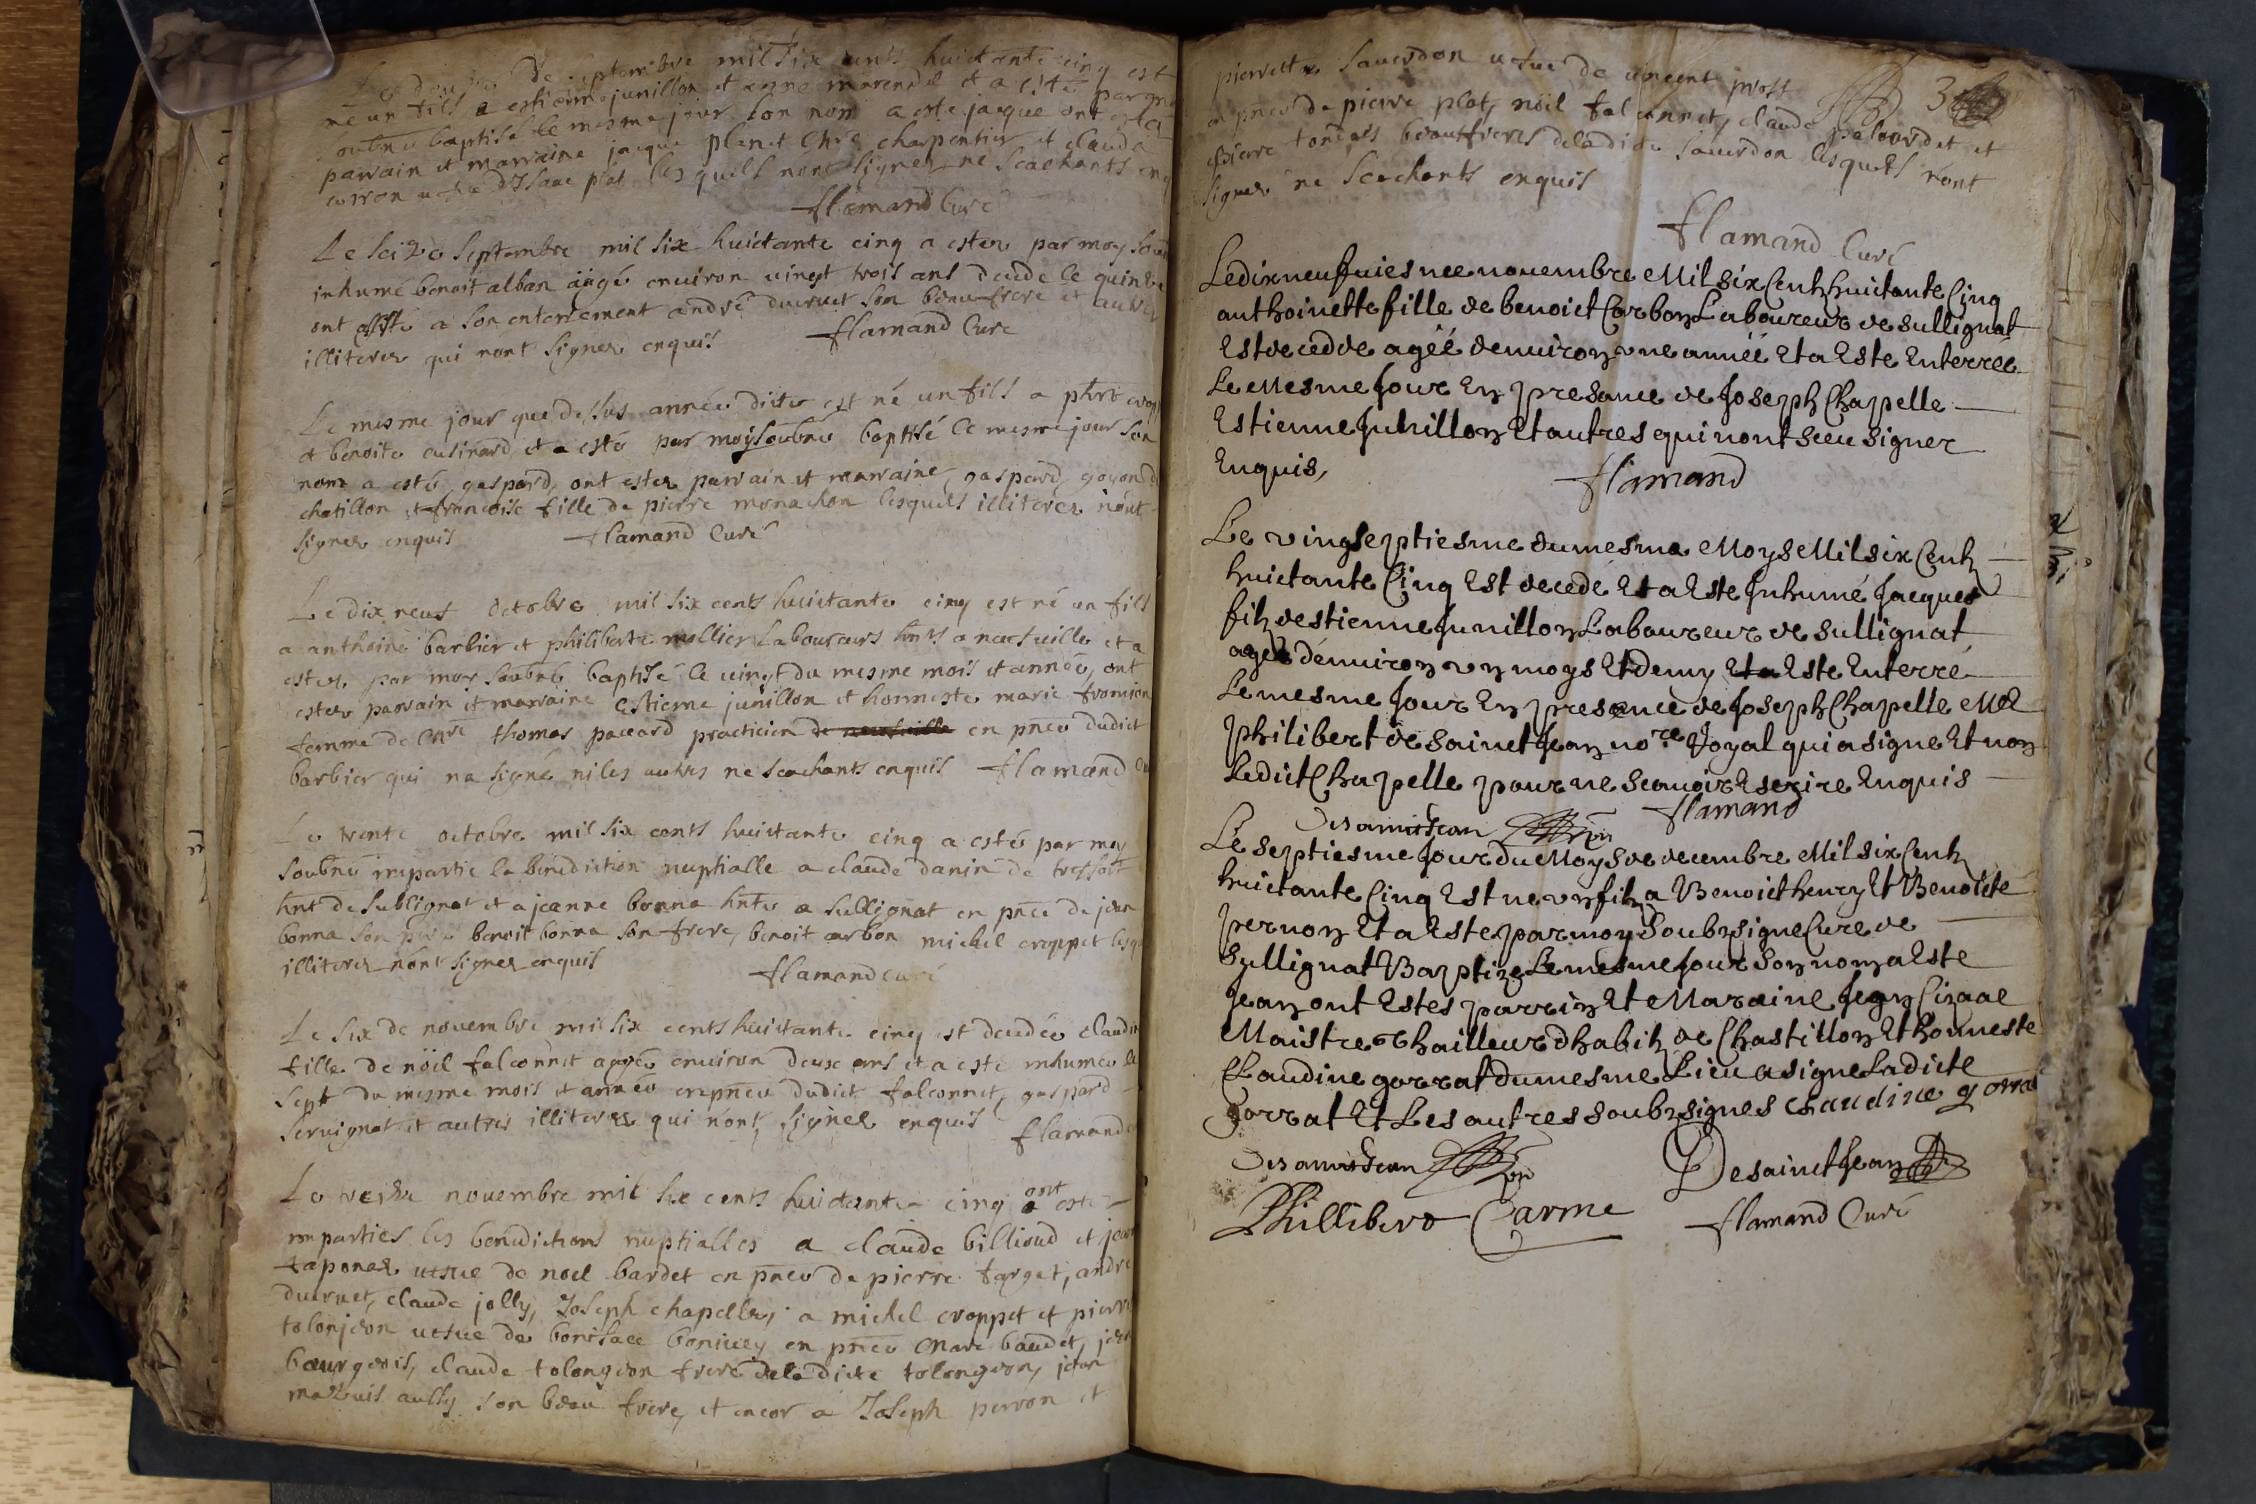 Le douze de septembre mil six cents huictante cinq est
né un fils a estienne junillon et anne marendel et a esté par moy
soubné baptisé le mesme jour son nom a esté jacque ont ester
parrain et marraine jacque planet Chre charpentier et claude
corron vefve d'Isaac plat lesquels n'ont signer ne scachants enq
flamand Curé
Le seize septembre mil six huictante cinq a ester par moy soub
inhumé benoit alban aagé environ vingt trois ans decedé le quinze
ont assisté a son enterrement andré ducruet son beau frere et autres
illiteres qui n'ont signer enquis flamand Curé
Le mesme jour que dessus année dicte est né un fils a phrt crop
et benoite cusinard et a esté par moy soubné baptisé le mesme jour son
nom a esté gaspard, ont ester parrain et marraine, gaspard goyon d
chatillon et francoise fille de pierre monachon lesquels illiteres n'ont
signer enquis flamand Curé
Le dix neuf octobre mil six cents huictante cinq est né un fils
a anthoine barbier et philiberte mallier laboureurs hnts a neufville et a
ester par moy soubné baptisé le vingt du mesme mois et année, ont
ester parrain et marraine estienne junillon et honneste marie fromion
femme de Mre thomas paccard practicien de neufville en pnce dudict
barbier qui na signé ni les autres ne scachants enquis flamand Cu
Le trente octobre mil six cents huictante cinq a esté par moy
soubné impartie la benediction nuptialle a claude danin de tressort
hnt de sullignat et a jeanne bonna hnte a sullignat en pnce de jean
bonna son pere benoit bonna son frere, benoit carbon michel croppet lesq
illiteres n'ont signer enquis
flamand curé
Le six de novembre mil six cents huictante cinq est decedée claudi
fille de noël falconnet agée environ deux ans et a esté inhumée le
sept du mesme mois et année en pnce dudict falconnet, gaspard
servignat et autres illiteres qui n'ont signer enquis flamand c
Le treize novembre mil six cents huictante cinq ont a esté
imparties les benedictions nuptialles a claude billioud et jean
taponat vefve de noel bardet en pnce de pierre farget, andré
ducruet, claude jolly, Joseph chapelle, a michel croppet et pierre
tolonjeon vefve de boniface bonivey en pnce Marc baudet, jean
bourgeois, claude tolongeon frere dela dicte tolongeon, jean
mazuis aussy son beau frere, et encor a Joseph perron et
pierrette saverdon vefve de vincent prost
en pnce de pierre plat, noël falconnet, claude palourdet et 3
et pierre tondais beaufreres deladicte saverdon lesquels n'ont
signer ne scachants enquis
flamand Curé
Le dix neufviesme novembre Mil six Cents huictante Cinq
anthoinette fille de benoict Carbon Laboureur de sullignat
Est decedde agéé denviron une annéé Et a Este Enterréé
Le Mesme Jour En presance de Joseph Chapelle
Estienne Junillon Et autres qui nont sceu signer
Enquis,
flamand
Le vingseptiesme du mesme Moys Mil six Cents
huictante Cinq Est decedé Et a Este Inhumé Jacques
filz destienne Junillon Laboureur de sullignat
agé dénviron un moys Et demy Et a Este Enterré
Le mesme Jour En presence de Joseph Chapelle Me
philibert de sainct Jean nore Royal qui a signe Et non
Ledict Chapelle pour ne scavoir Escrire Enquis
flamand
Desainctjean
Le septiesme Jour du Moys de decembre Mil six Cents
huictante Cinq Est ne un filz a Benoict henry Et Benoicte
pernon Et a Este par moy Soubzsigne Cure de
Sullignat Baptize Le mesme Jour Son nom a Este
Jean ont Estes parrin Et Maraine Jean Cizaae
Maistre thailleur dhabitz de Chastillon Et honneste
Claudine garrat du mesme Lieu a signe Ladicte
garrat Et Les autres soubzsignes Claudine gorra
Desainctjean
Desainctjean
Phillibert Carme flamand Curé